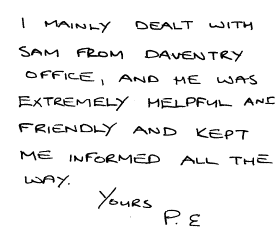 I MAINLY DEALT WITH
SAM FROM DAVENTRY
OFFICE, AND HE WAS
EXTREMELY HELPFUL AND
FRIENDLY AND KEPT
ME INFORMED ALL THE
WAY.
YOURS
P. E